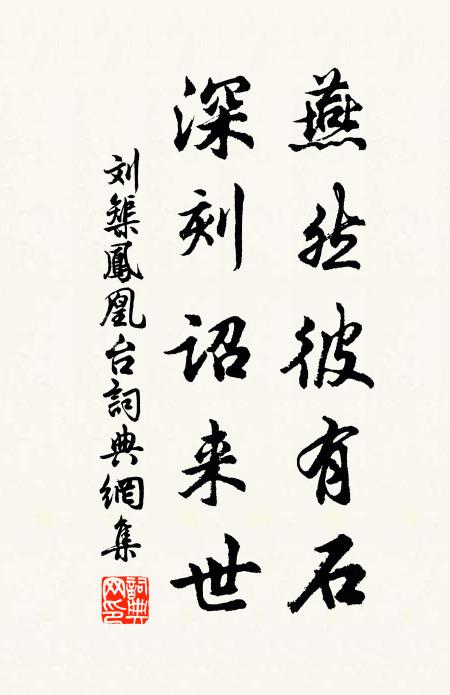 燕然彼有石
深刻詔来世
刘篥鳳凰台詞典網集
詞典网印